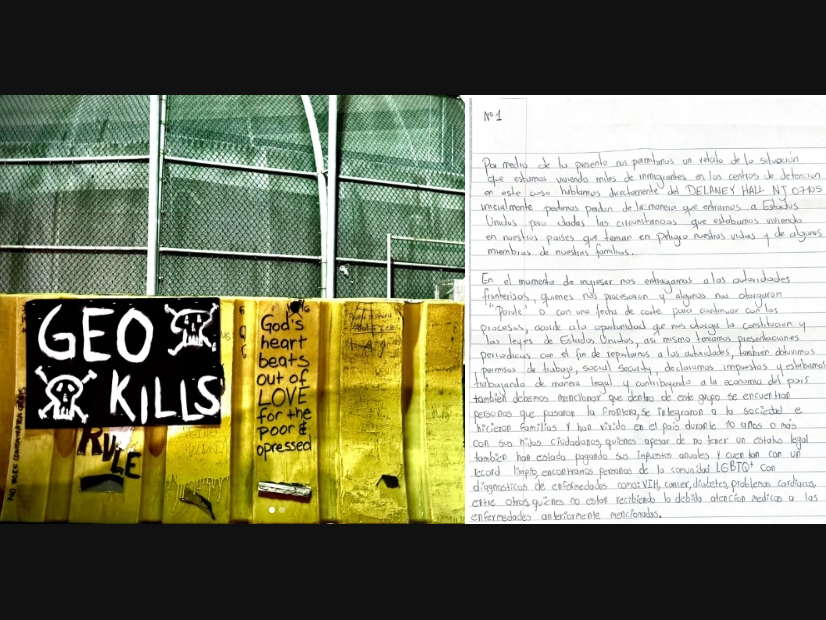 GEO
KILLS
RULE
God's
heart
beats
out of
LOVE
for the
poor &
opressed
Nº 1
Por medio de la presente nos permitimos un relato de la situación
que estamos viviendo miles de inmigrantes en los centros de detencion
en este caso hablamos directamente del DELANEY HALL NJ 07105
inicialmente pedimos perdon de la manera que entramos a Estados
Unidos, pero dadas las circunstancias que estabamos viviendo
en nuestros paises que tenian en peligro nuestras vidas y de algunos
miembros de nuestras familias.
En el momento de ingresar nos entregamos a las autoridades
fronterizas, quienes nos procesaron y algunos nos otorgaron
"Parole" o con una fecha de corte para continuar con los
procesos, acorde a la oportunidad que nos otorga la constitucion y
las leyes de Estados Unidos, asi mismo teniamos presentaciones
periodicas con el fin de reportarnos a las autoridades, tambien obtuvimos
permisos de trabajo, social security, declaramos impuestos y estabamos
trabajando de manera legal y contribuyendo a la economia del pais
tambien debemos mencionar que dentro de este grupo se encuentran
personas que pasaron la frontera, se integraron a la sociedad e
hicieron familias y han vivido en el pais durante 10 años o más
con sus hijos ciudadanos, quienes apesar de no tener un estatus legal
tambien han estado pagando sus impuestos anuales y cuentan con un
record limpio, encontramos personas de la comunidad LGBTQ+ con
diagnosticos de enfermedades como: VIH, cancer, diabetes, problemas cardiacos,
entre otros, quienes no estan recibiendo la debida atencion medica a las
enfermedades anteriormente mencionadas.